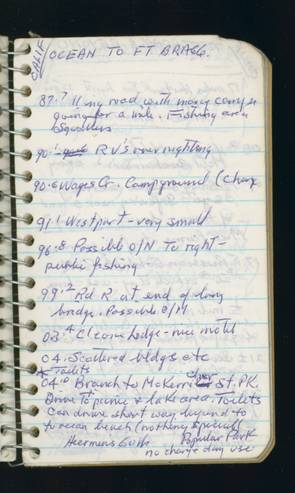 CALIF
OCEAN TO FT BRAGG.
87.7 road with many
going for a mile. Fishing area
90.1 RV's overnighting
90.6 Wages Cr. Campground (Charge
91.1 Westport - very small
96.8 Possible O/N To right -
public fishing
99.2 Rd R at end of long
bridge. Possible O/N
03.4 Cleone Lodge - nice motel
04. Scattered bldgs etc
* Toilets
04.0 Branch to McKerricher St. Pk.
Drive to picnic & lake area. Toilets
Can drive short way beyond to
to ocean beach (nothing special)
Popular Park
no charge day use